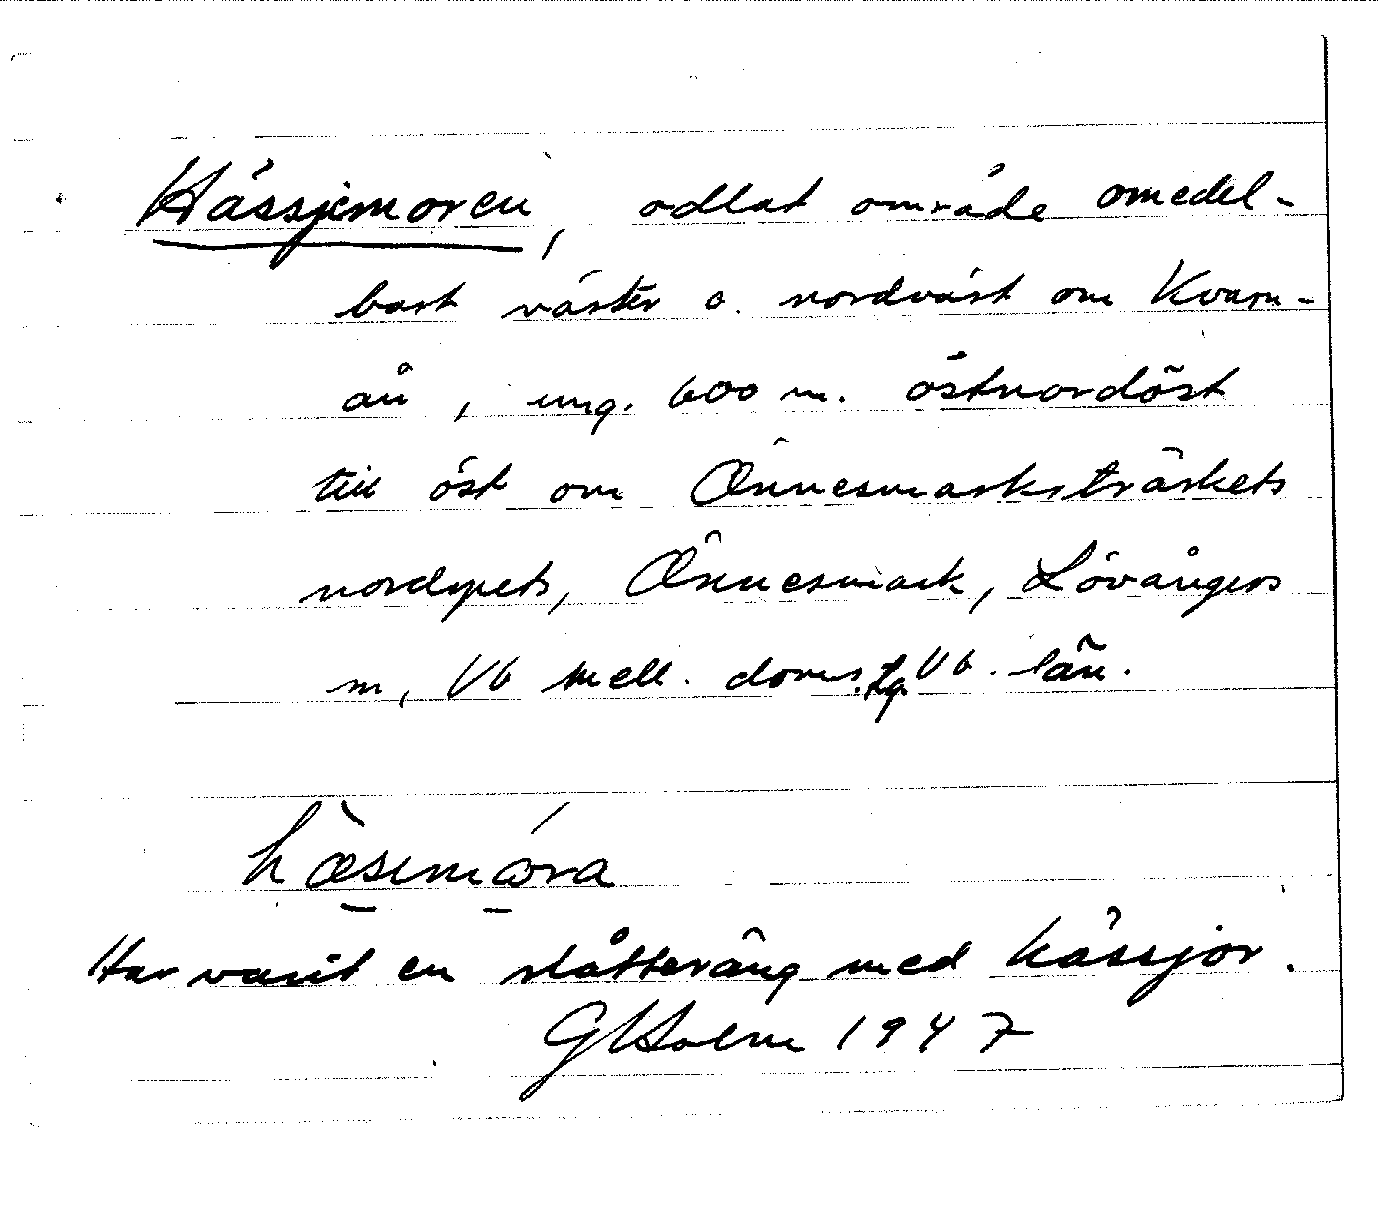 Hässjemoren, odlat område omedel-
bart väster o. nordväst om Kvarn-
ån, ung. 600 m. östnordöst
till öst om Önnesmarksträskets
nordspets, Önnesmark, Lövångers
sn, Vb mell. doms.tg. Vb. län.
hæsɩmóra
Har varit en slåtteräng med hässjor.
G Holm 1947